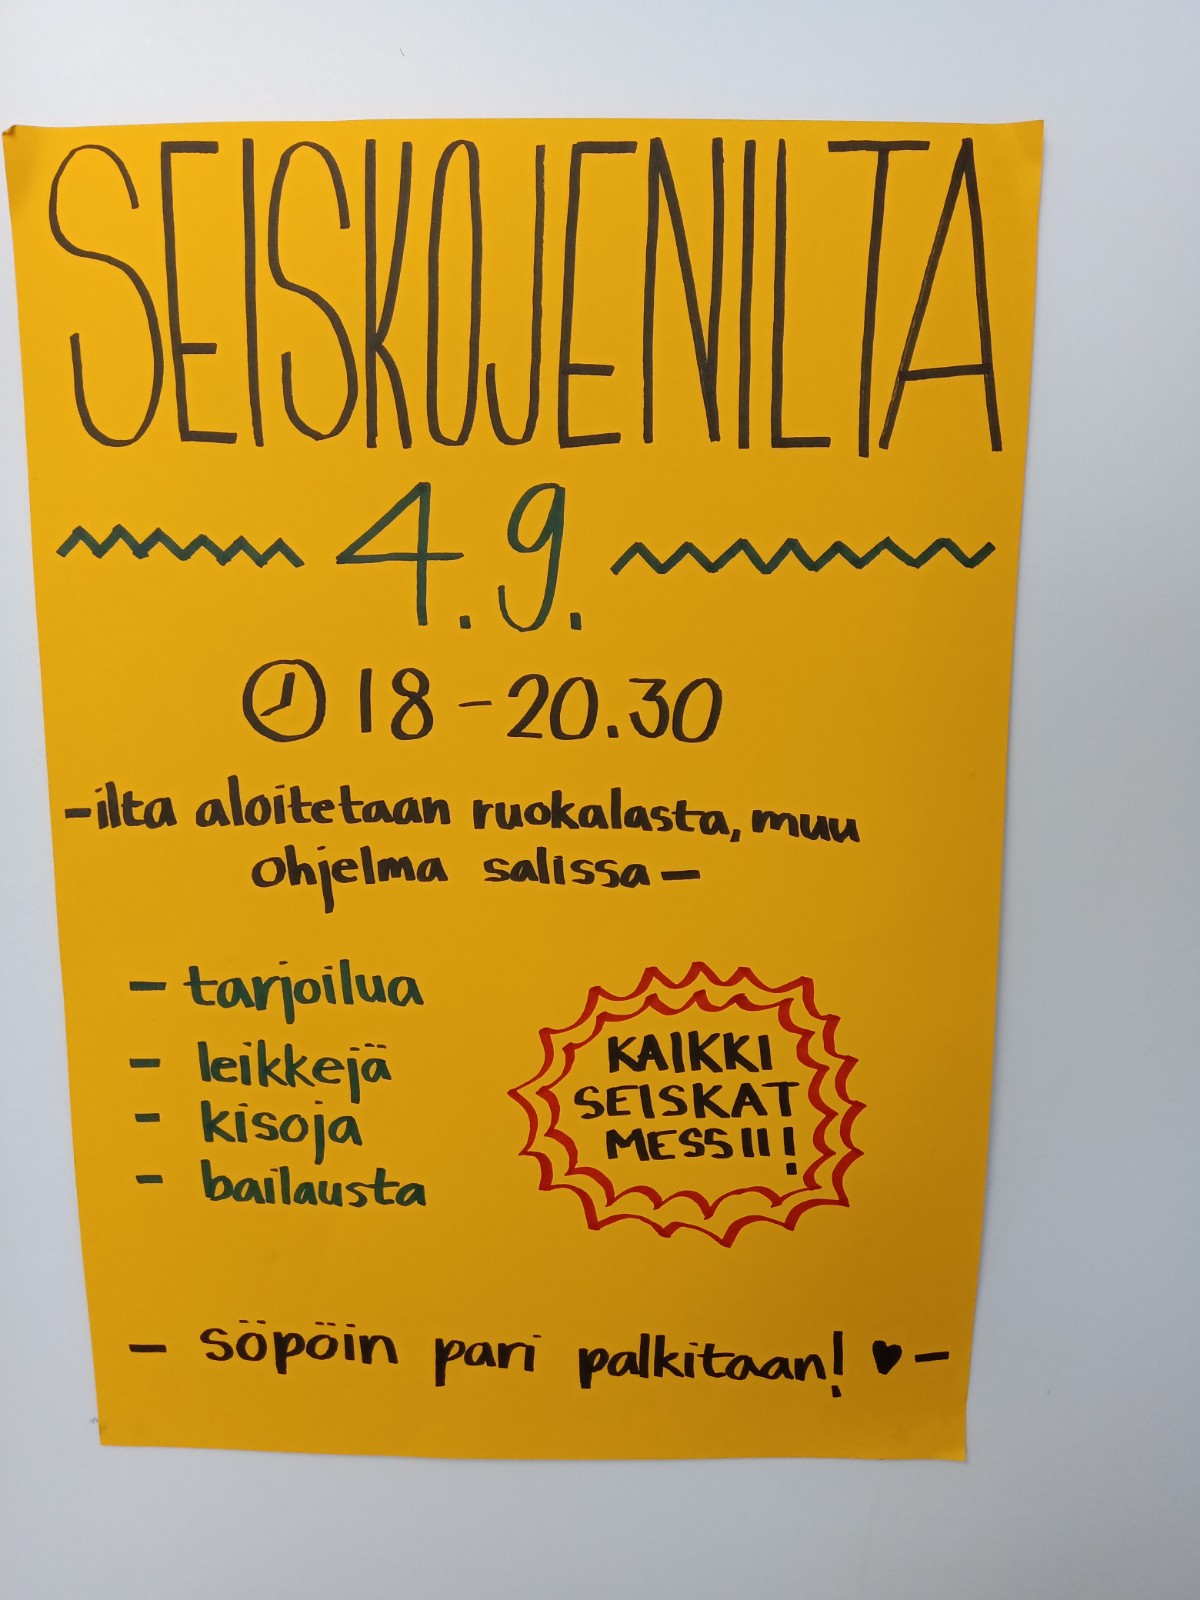 SEISKOJENILTA
4.9.
18-20.30
-ilta aloitetaan ruokalasta, muu
ohjelma salissa-
- tarjoilua
- leikkejä
- kisoja
- bailausta
KAIKKI
SEISKAT
MESSII!
- söpöin pari palkitaan! ♥-